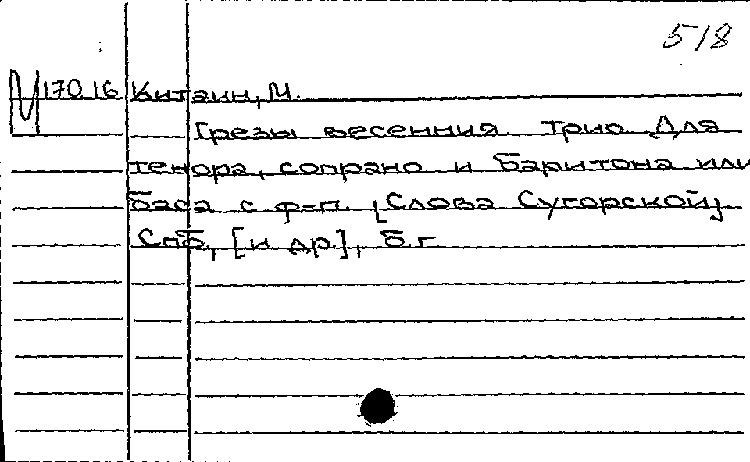 518
М 170 16 Китаин, М.
Грезы весенния. Трио Для
тенора, сопрано и баритона или
баса с ф=п. [Слова Сугорской].
Спб, [и др.], б.г.